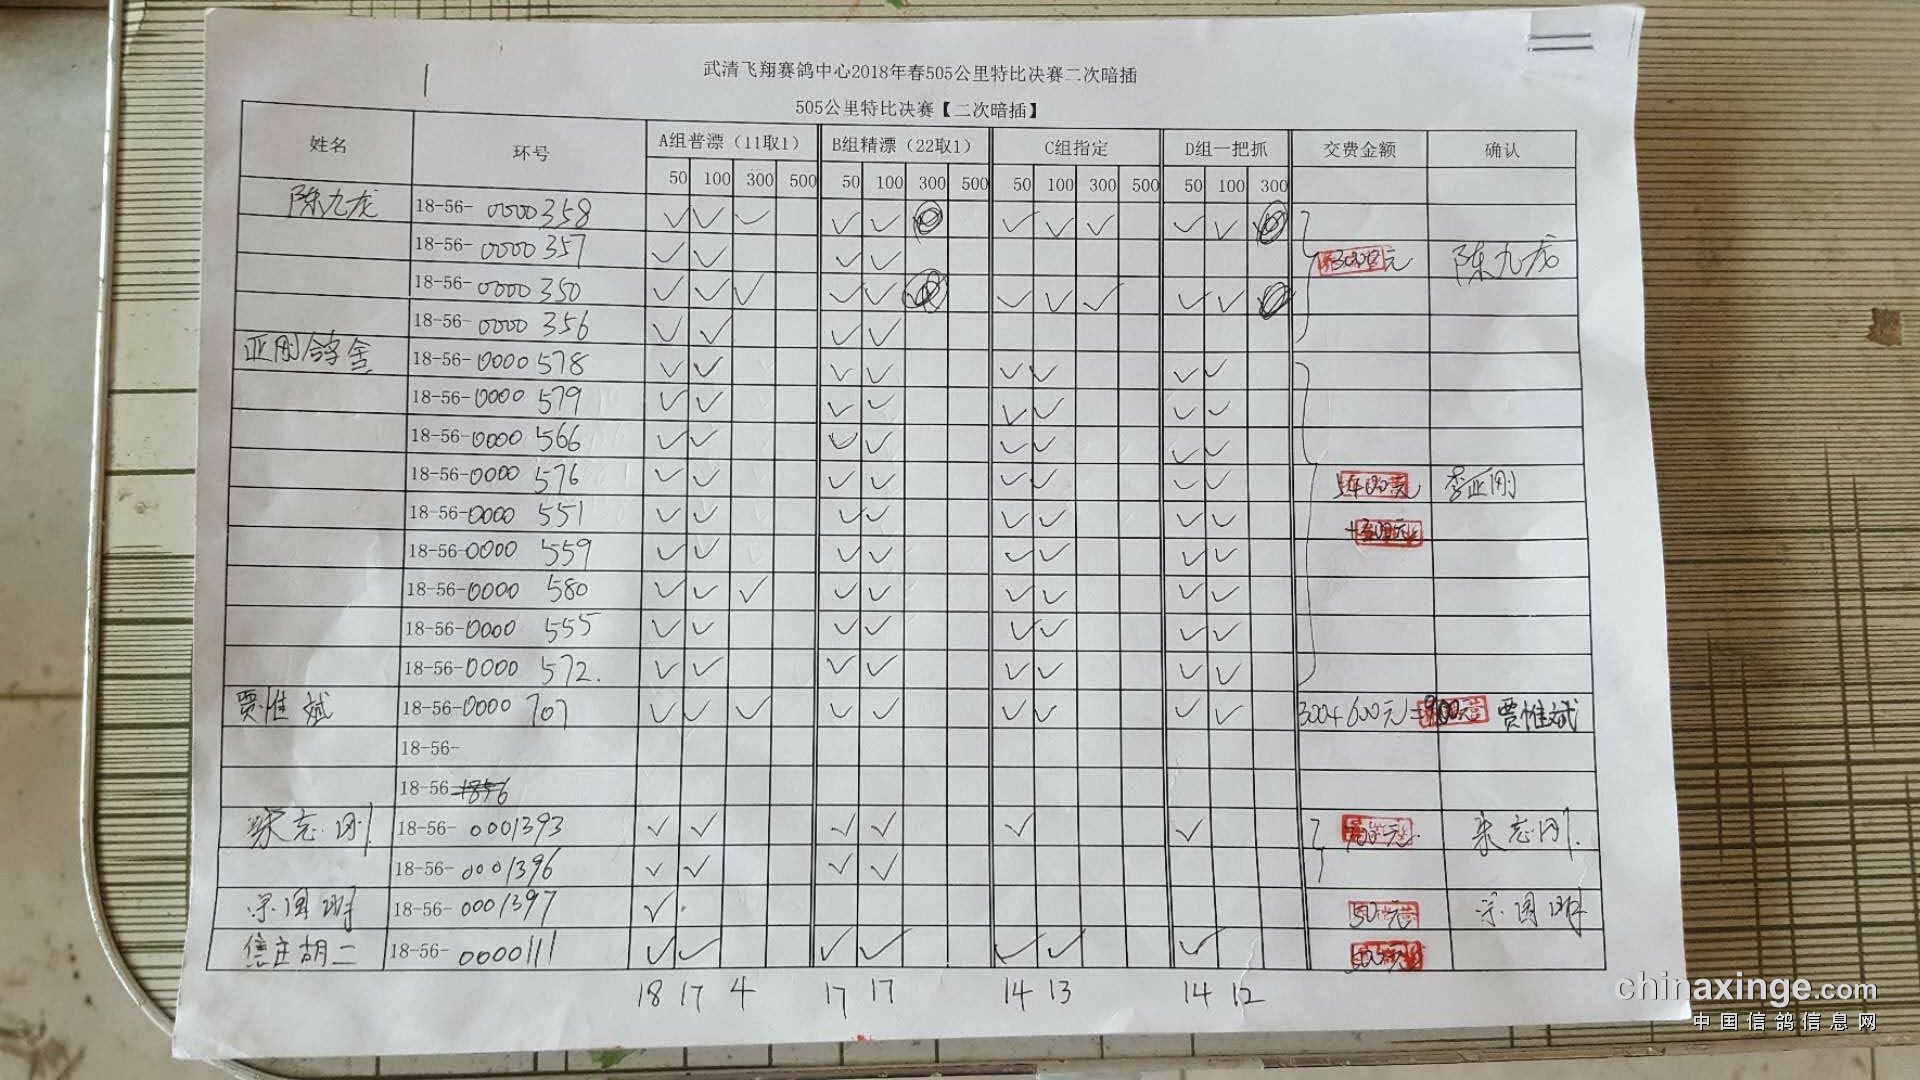 武清飞翔赛鸽中心2018年春505公里特比决赛二次暗插
505公里特比决赛【二次暗插】
姓名 环号 A组普漂（11取1） B组精漂（22取1） C组指定 D组一把抓 交费金额 确认
50 100 300 500 50 100 300 500 50 100 300 500 50 100 300
陈九龙 18-56- 0000358 ✓ ✓ ✓ ✓ ✓ ✓ ✓ ✓ ✓ ✓
18-56- 0000357 ✓ ✓ ✓ ✓ 3000元 陈九龙
18-56- 0000350 ✓ ✓ ✓ ✓ ✓ ✓ ✓ ✓ ✓ ✓
18-56- 0000356 ✓ ✓ ✓ ✓
亚刚鸽舍 18-56-0000578 ✓ ✓ ✓ ✓ ✓ ✓ ✓ ✓
18-56-0000 579 ✓ ✓ ✓ ✓ ✓ ✓ ✓ ✓
18-56-0000 566 ✓ ✓ ✓ ✓ ✓ ✓ ✓ ✓
18-56-0000 576 ✓ ✓ ✓ ✓ ✓ ✓ ✓ ✓ 5400元 李亚刚
18-56-0000 551 ✓ ✓ ✓ ✓ ✓ ✓ ✓ ✓ +300元
18-56-0000 559 ✓ ✓ ✓ ✓ ✓ ✓ ✓ ✓
18-56-0000 580 ✓ ✓ ✓ ✓ ✓ ✓ ✓ ✓ ✓
18-56-0000 555 ✓ ✓ ✓ ✓ ✓ ✓ ✓ ✓
18-56-0000 572. ✓ ✓ ✓ ✓ ✓ ✓ ✓ ✓
贾惟斌 18-56-0000 707 ✓ ✓ ✓ ✓ ✓ ✓ ✓ ✓ ✓ 300+600元=900元 贾惟斌
18-56-
18-56-1856
18-56- 0001393 ✓ ✓ ✓ ✓ ✓ ✓ 700元
18-56- 0001396 ✓ ✓ ✓ ✓
18-56- 0001397 ✓ 50元
胡二 18-56- 0000111 ✓ ✓ ✓ ✓ ✓ ✓ ✓
18 17 4 17 17 14 13 14 12
chinaxinge.com
中国信鸽信息网